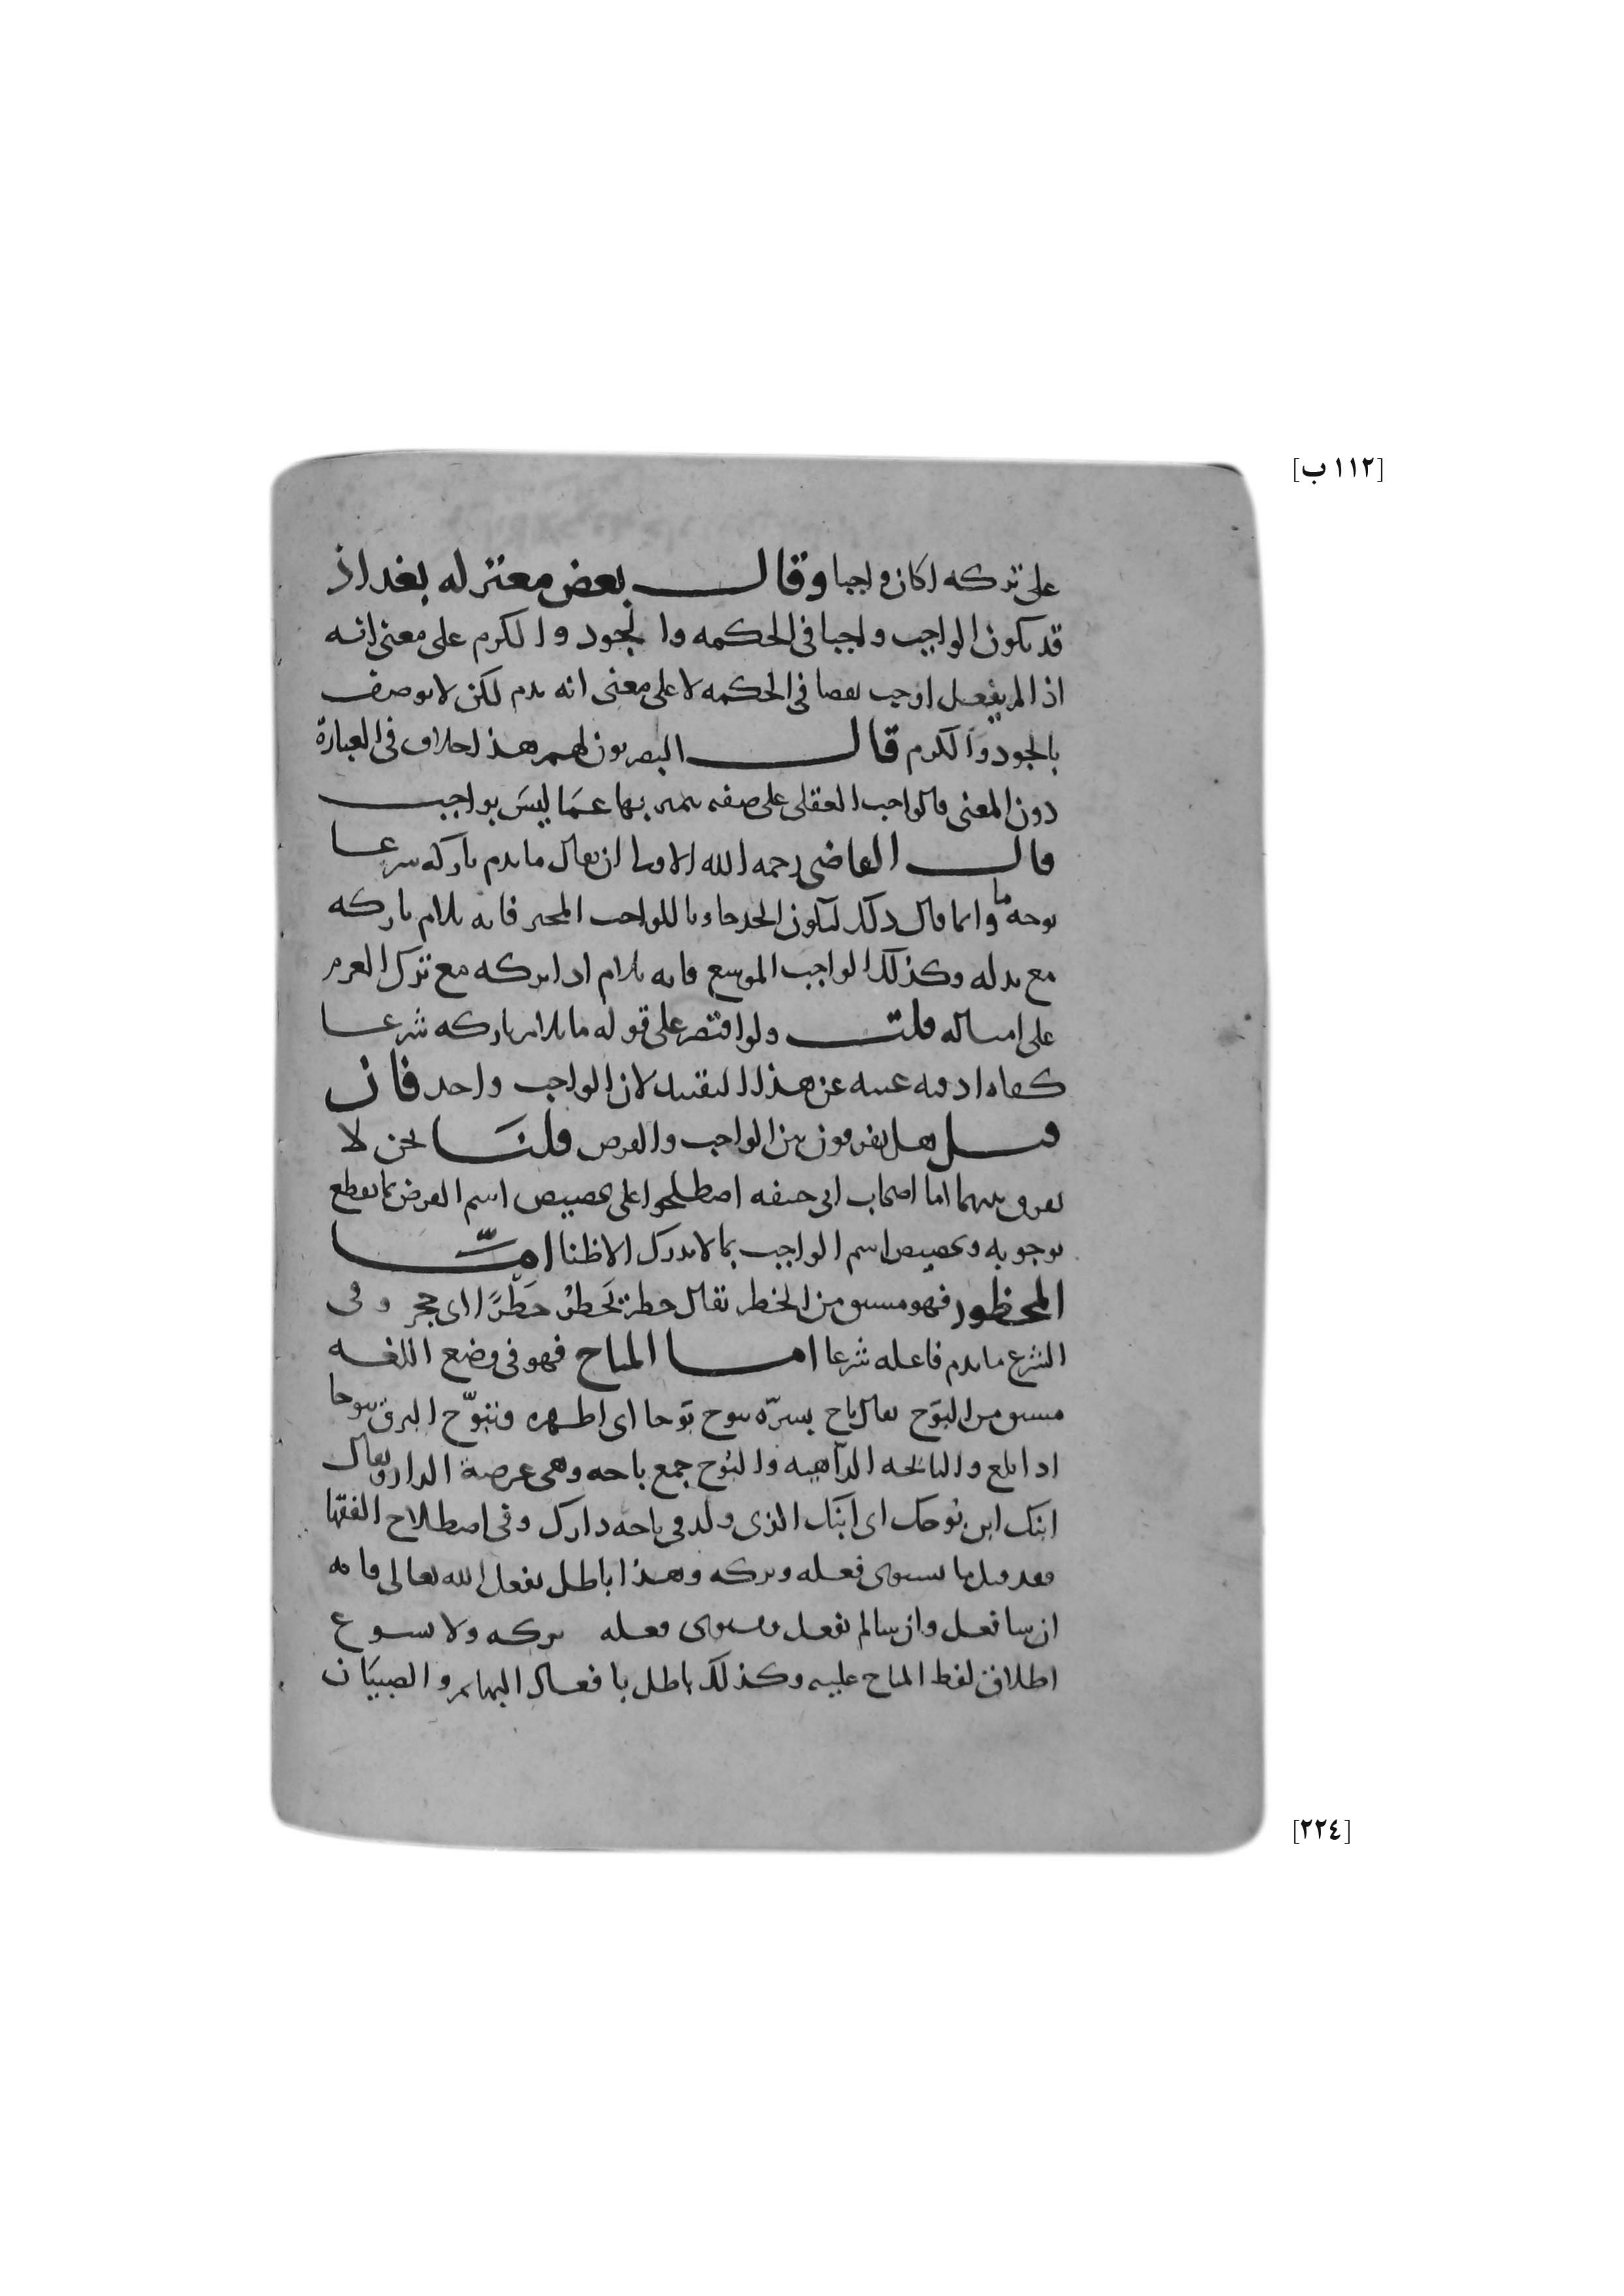 [١١٢ ب]
على تركه اكان واجبا وقال بعض معتزله بغداذ
قد يكون الواجب واجبا في الحكمه والجود والكرم على معنى انه
اذا لم يفعل اوجب نقصا في الحكمه لا على معنى انه يذم لكن لا يوصف
بالجود والكرم قال البصريون لهم هذا خلاف في العبارة
دون المعنى فالواجب العقلي على صفه يتميز بها عما ليس بواجب
قال القاضي رحمه الله الاولى ان يقال ما يذم تاركه شرعا
بوجه ما وانما قال ذلك ليكون الحد حاويا للواجب المخير فانه يلام تاركه
مع بدله وكذلك الواجب الموسع فانه يلام اذا تركه مع ترك العزم
على امتثاله قلت ولو اقتصر على قوله ما يلام تاركه شرعا
كفاه اذ فيه غنيه عن هذا التقييد لان الواجب واحد فان
قيل هل تفرقون بين الواجب والفرض قلنا نحن لا
نفرق بينهما اما اصحاب ابي حنيفه اصطلحوا على تخصيص اسم الفرض بما يقطع
بوجوبه وتخصيص اسم الواجب بما لا يدرك الا ظنا امّا
المحظور فهو مشتق من الحظر يقال حظر يَحظرُ حَظرًا اي حجر وفي
الشرع ما يذم فاعله شرعا اما المباح فهو في وضع اللغه
مشتق من البَوْح يقال باح بسرّه يبوح بَوحا اي اظهره وتبوّح البرق تبوحا
اذا لمع والبائحه الدّاهيه والبُوح جمع باحه وهي عرصة الدار ويقال
ابنك ابن بُوحك اي ابنك الذي ولد في باحه دارك وفي اصطلاح الفقها
فقد قيل ما يستوي فعله وتركه وهذا باطل بفعل الله تعالى فانه
ان شا فعل وان شا لم يفعل ويستوي فعله تركه ولا يسوغ
اطلاق لفظ المباح عليه وكذلك باطل بافعال البهايم والصبيَان
[٢٢٤]